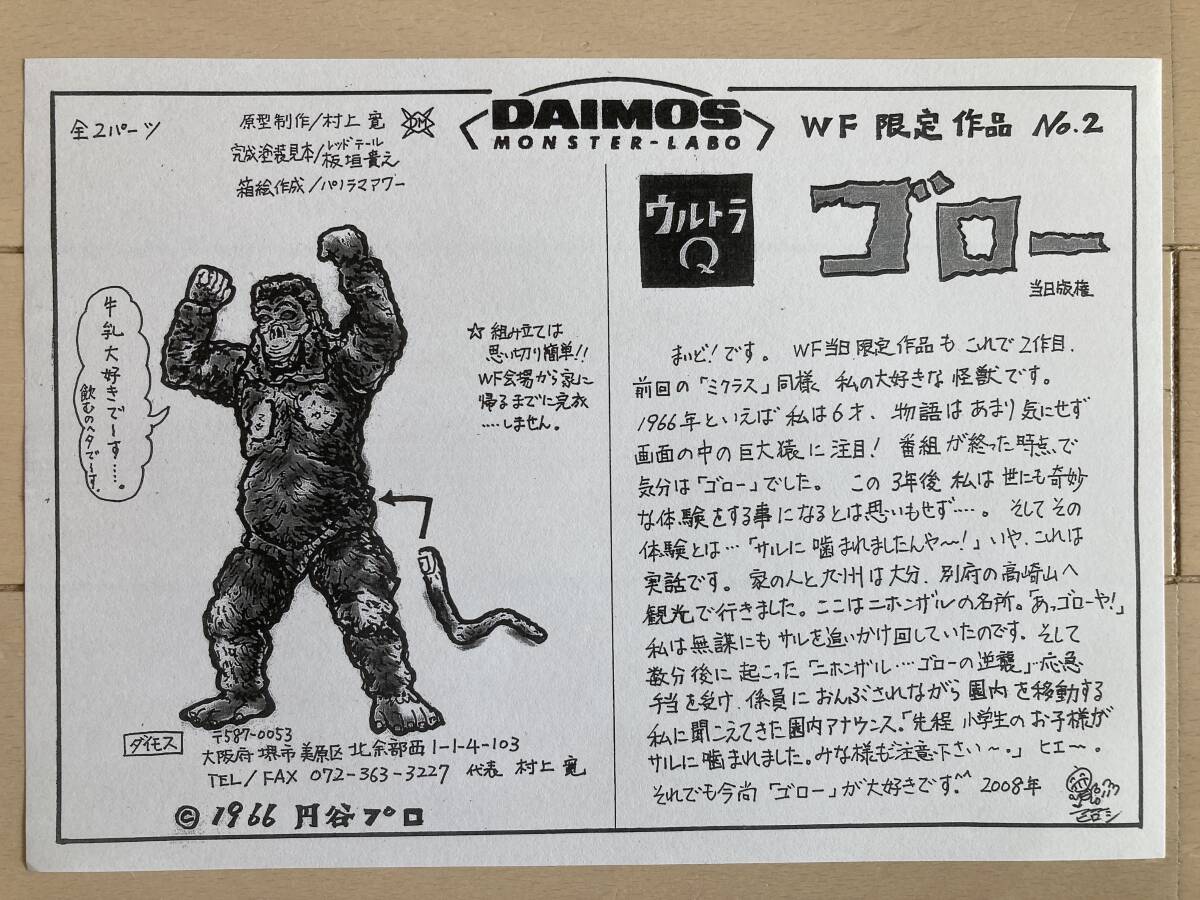 全2パーツ
原型制作/村上 寛
DM
完成塗装見本/レッドテール 板垣貴之
箱絵作成/パノラマアワー
DAIMOS
MONSTER-LABO
WF 限定作品 No.2
ウルトラ
Q
ゴロー
当日版権
牛乳大好きで〜す……。
飲むのヘタで〜す。
☆ 組み立ては
思い切り簡単!!
WF会場から家に
帰るまでに完成
……しません。
まいど!です。 WF当日限定作品も これで2作目、
前回の「ミクラス」同様 私の大好きな怪獣です。
1966年といえば 私は6才、物語はあまり気にせず
画面の中の巨大猿に注目! 番組が終った時点で
気分は「ゴロー」でした。 この3年後 私は世にも奇妙
な体験をする事になるとは思いもせず……。 そしてその
体験とは…「サルに噛まれましたんや〜!」いや、これは
実話です。 家の人と九州は大分、別府の高崎山へ
観光で行きました。ここはニホンザルの名所。「あっゴローや!」
私は無謀にもサルを追いかけ回していたのです。そして
数分後に起こった「ニホンザル…ゴローの逆襲」応急
手当を受け、係員におんぶされながら園内を移動する
私に聞こえてきた園内アナウンス、「先程 小学生のお子様が
サルに噛まれました。みな様もご注意下さい〜。」ヒエ〜。
それでも今尚「ゴロー」が大好きです。^^ 2008年
ダイモス
〒587-0053
大阪府堺市美原区北余部西1-1-4-103
TEL/FAX 072-363-3227 代表 村上 寛
© 1966 円谷プロ